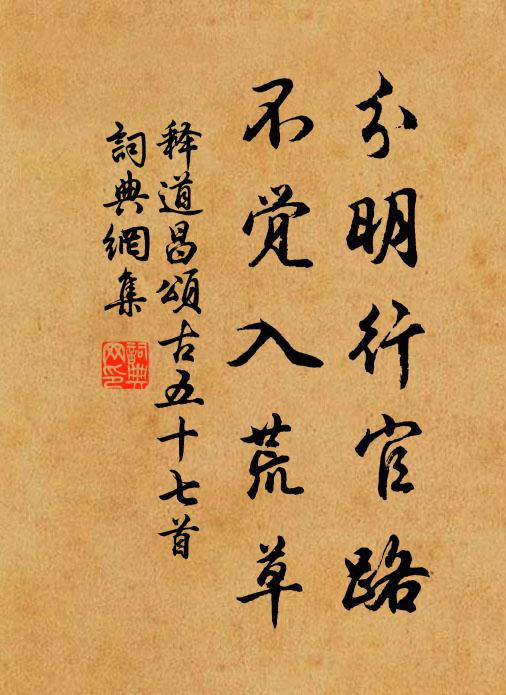 分明行官路
不觉入荒草
释道昌頌古五十七首
詞典網集
詞典网印